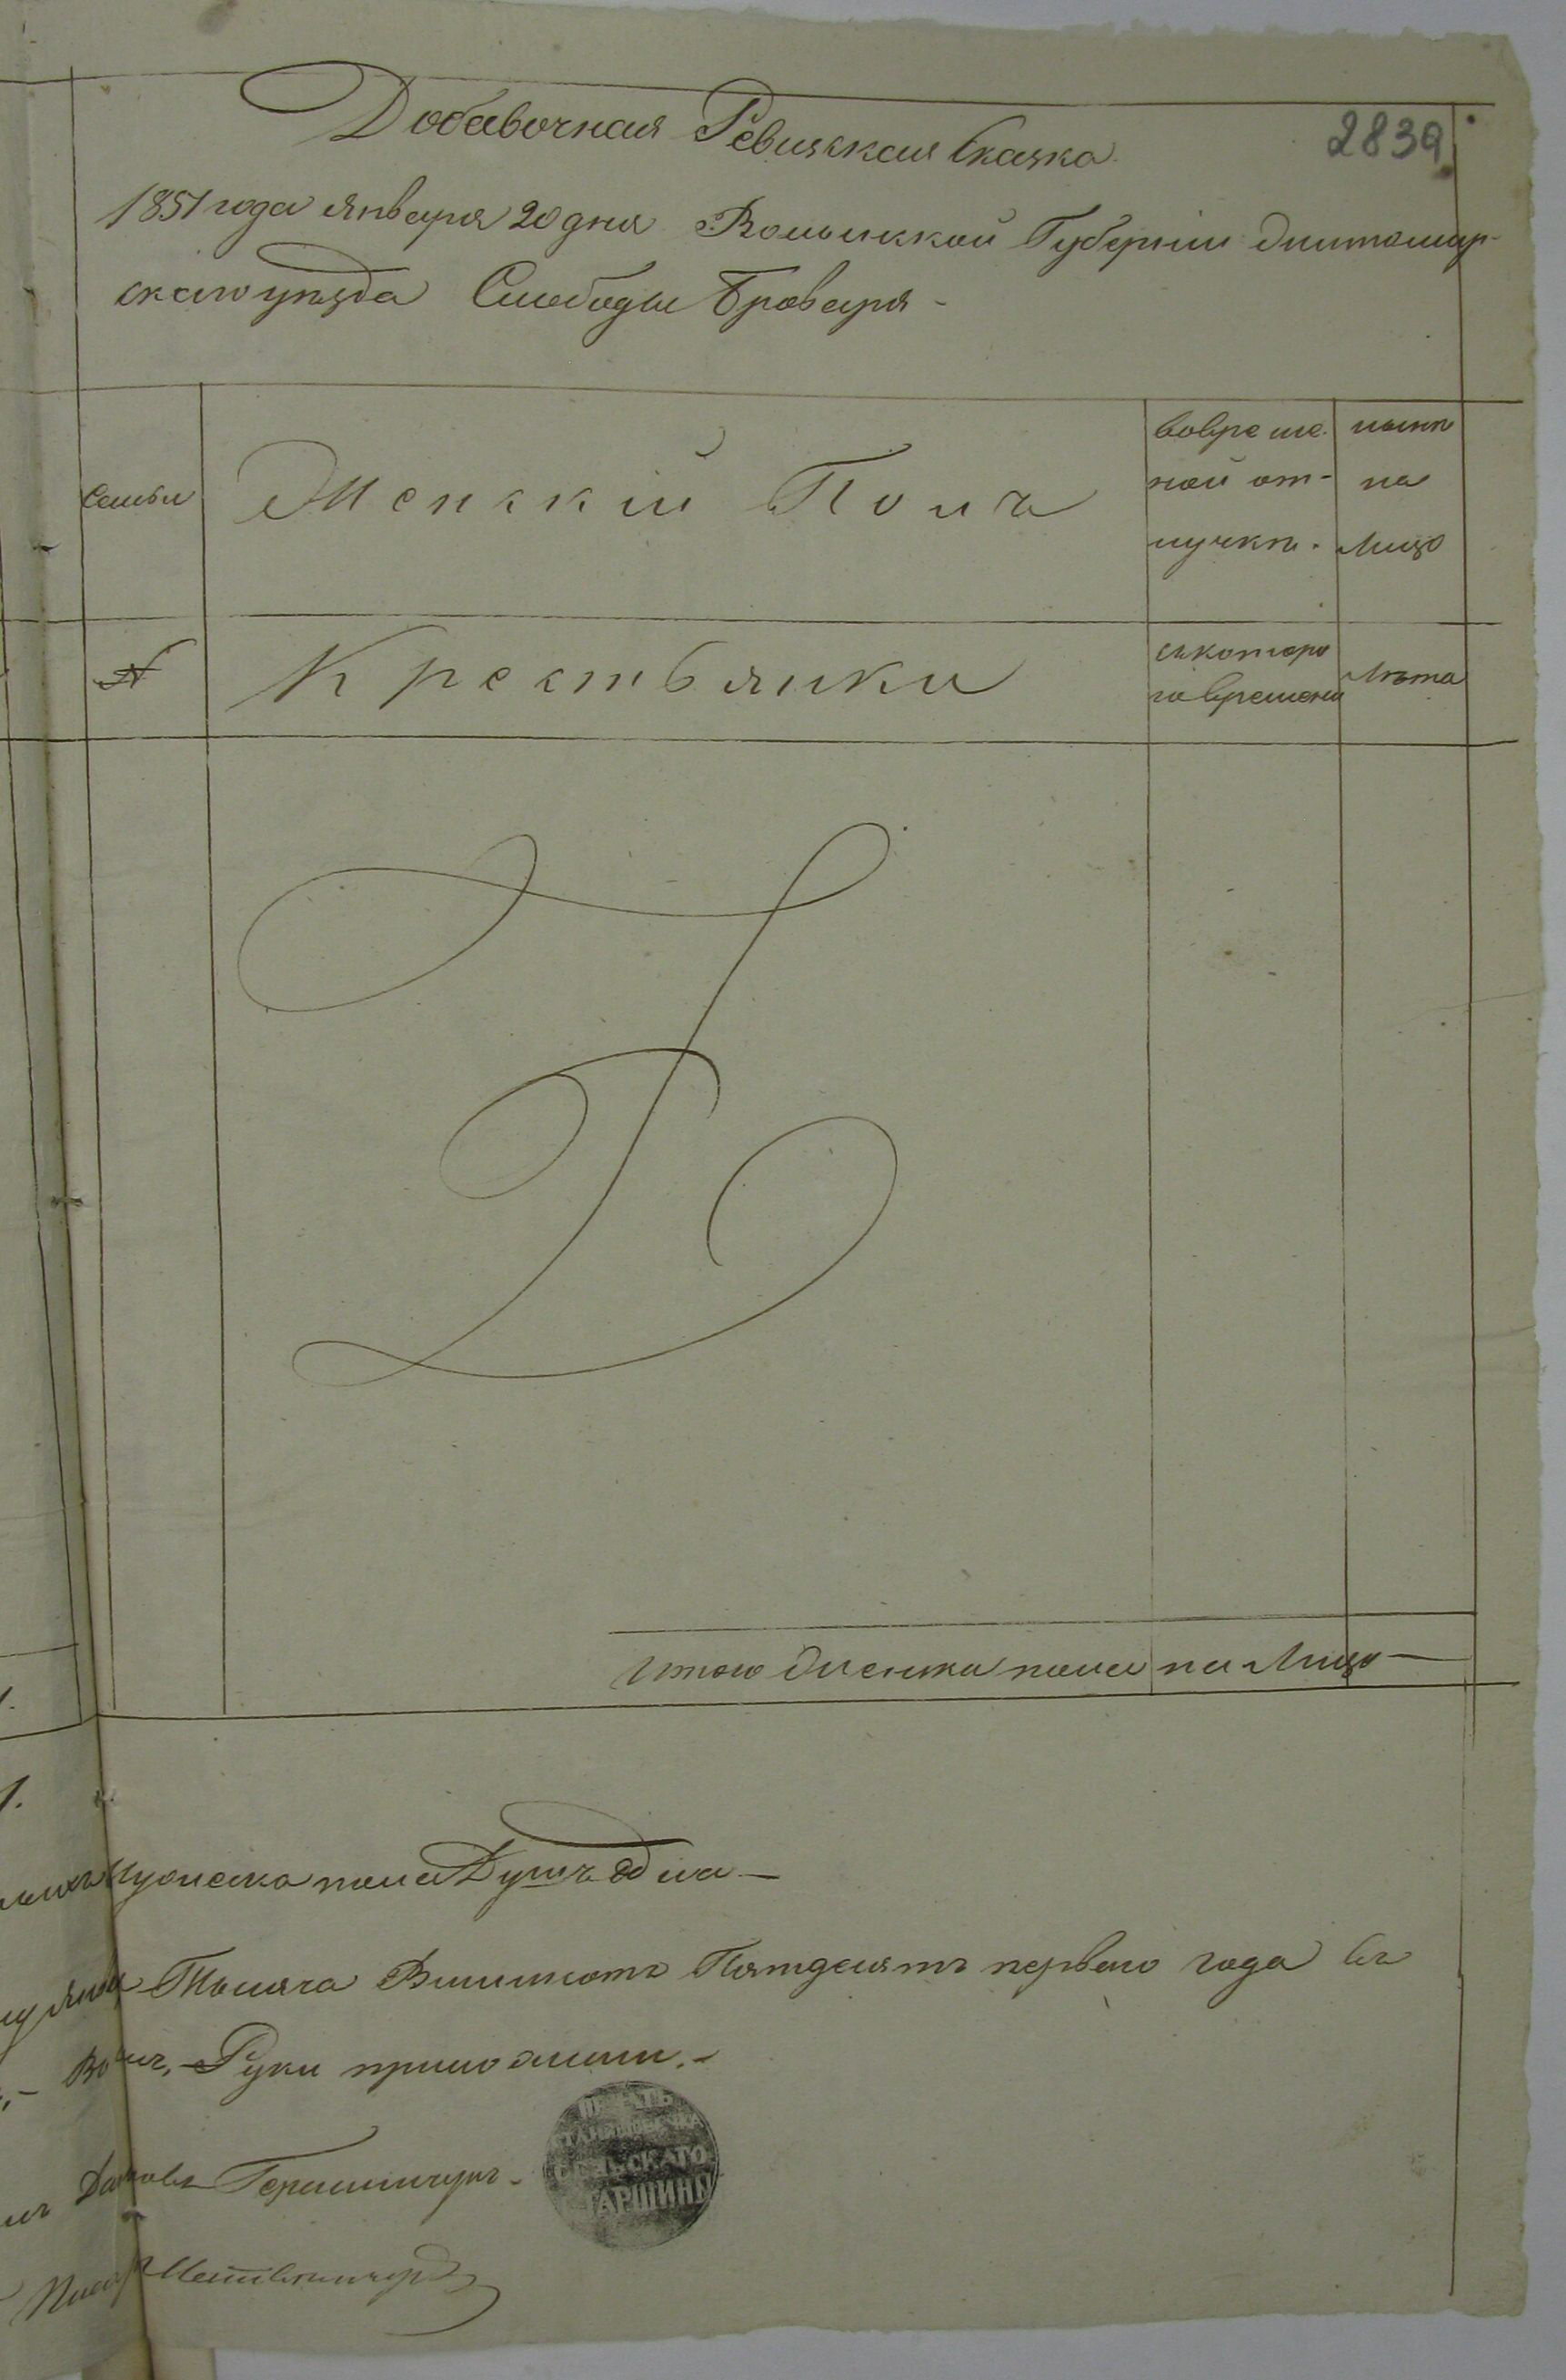 Добавочная Ревизкая Сказка
2839
1851 года Января 20 дня Волынской Губерніи Житомир-
скаго уезда Слободы Броваря -
Семьи
Женскій Полъ
вовреме.
ной от-
лучкѣ.
нынѣ
на
лицо
№
Крестьянки
съкоторо
го времени
Лѣта
Итого женска пола на Лицо —
Мужеска пола Душъ одна —
Тысяча Восимсотъ Пятдесятъ первого года въ
Руки приложили. -
Герасимчукъ -
СЕЛЬСКАГО